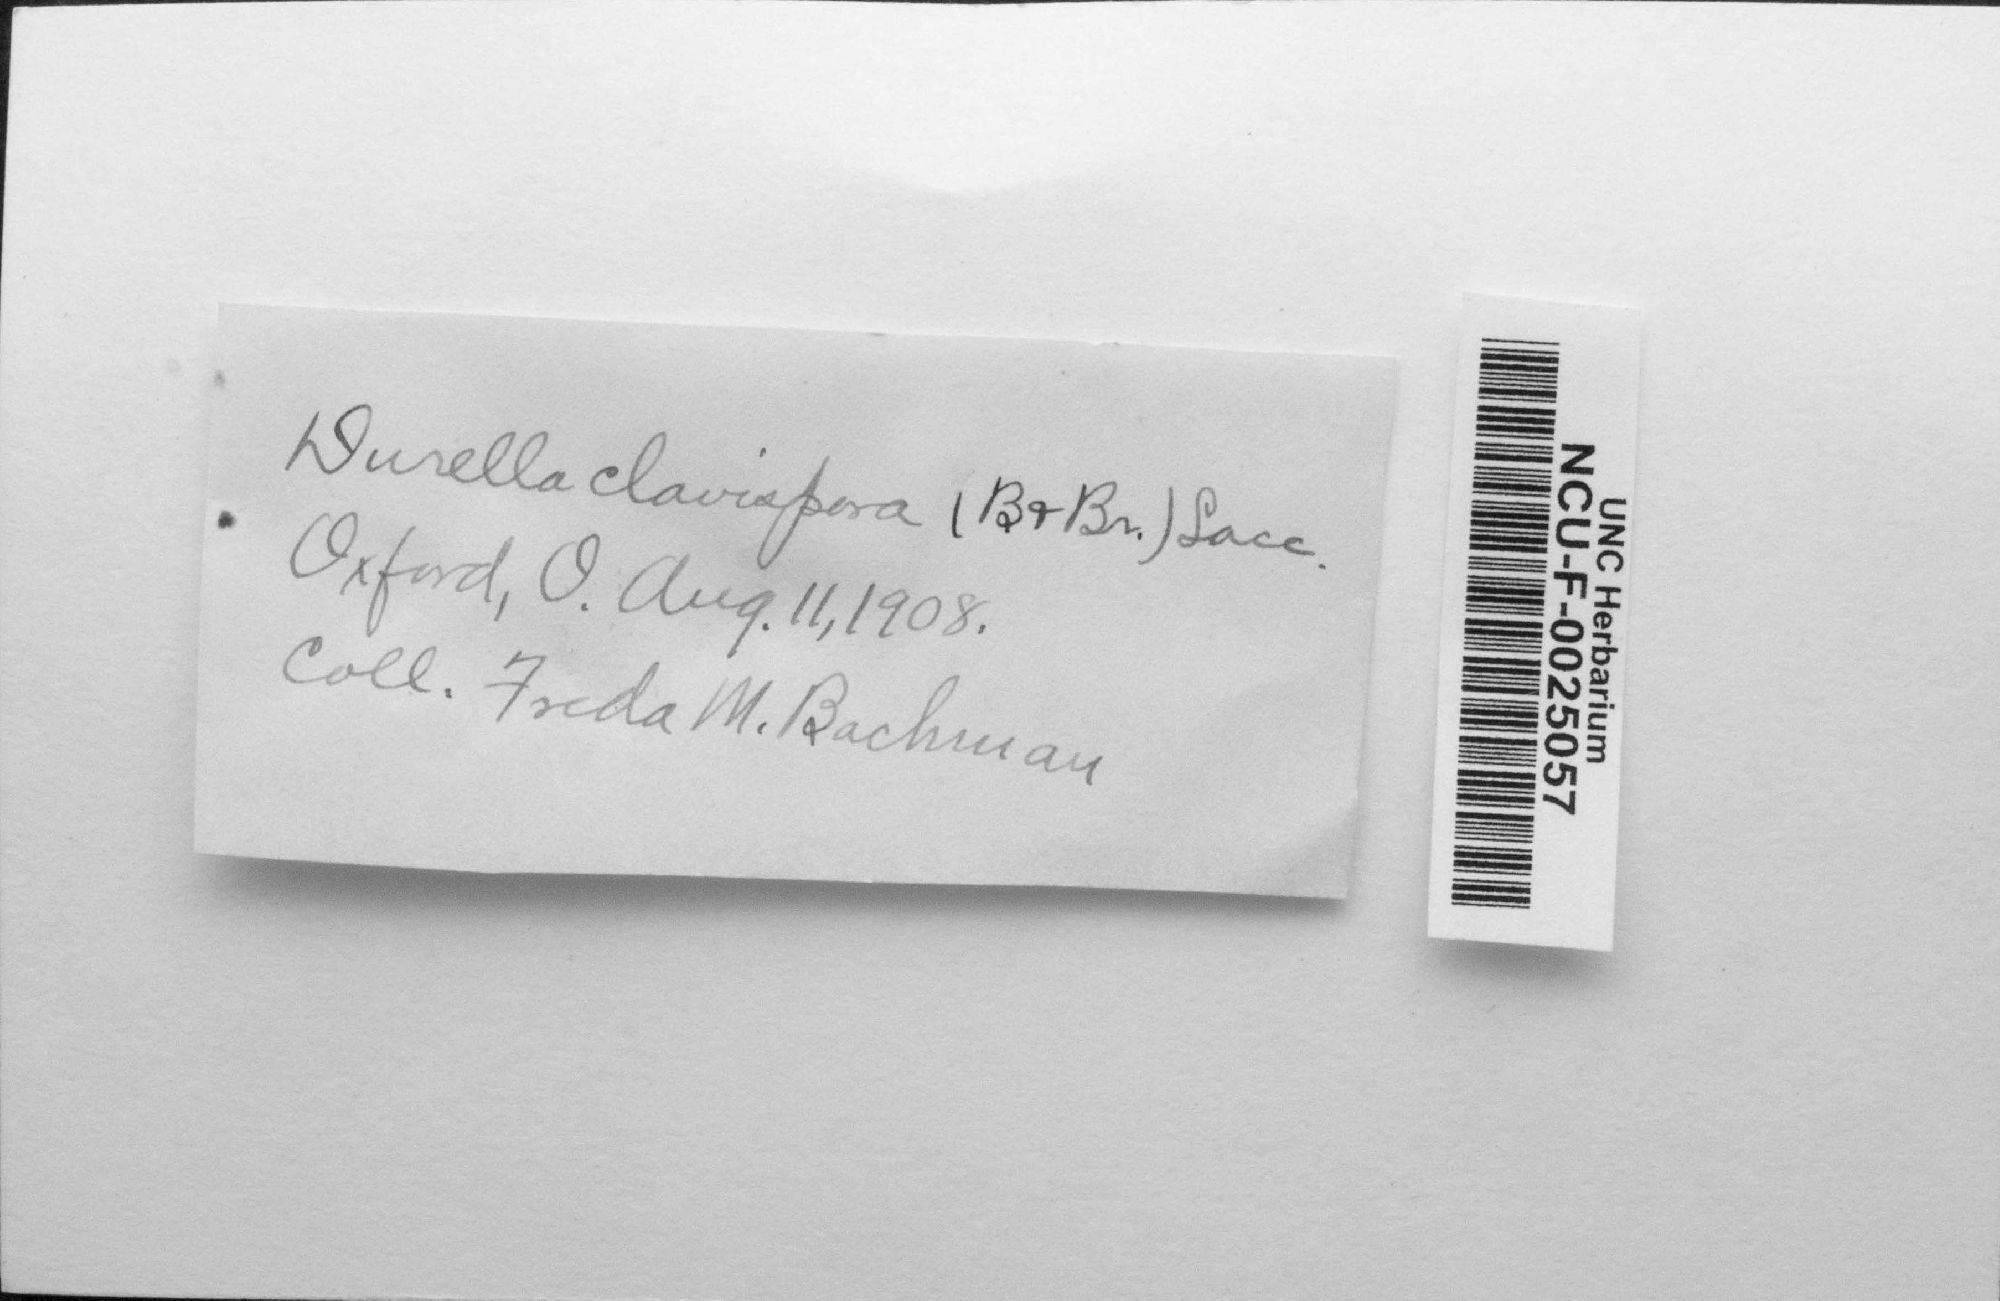 Durella clavispora (B & Br.) Sacc.
Oxford, O. Aug. 11, 1908.
Coll. Freda M. Bachman
UNC Herbarium
NCU-F-0025057